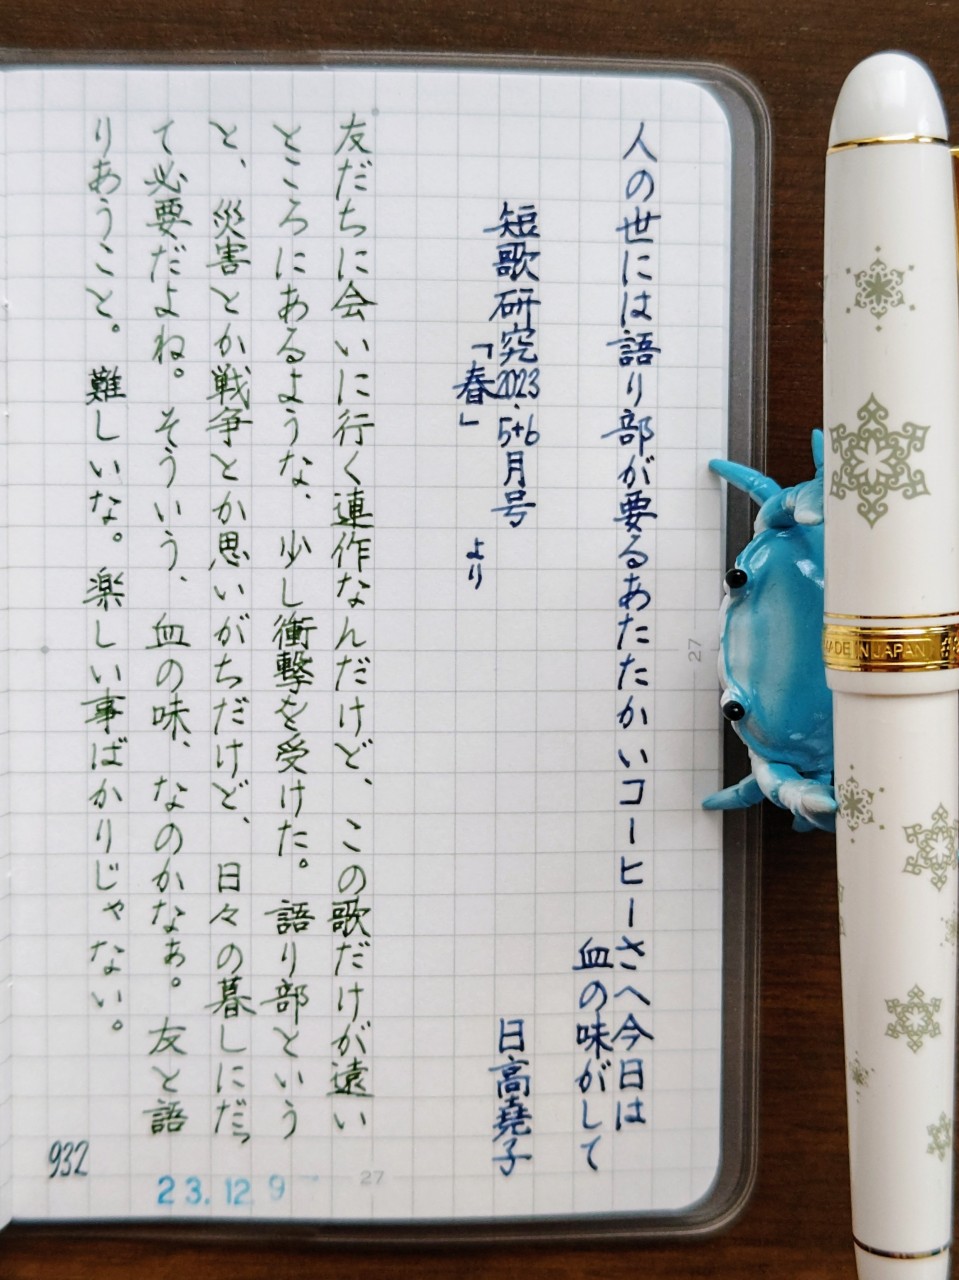 人の世には語り部が要るあたたかいコーヒーさへ今日は
血の味がして
短歌研究2023.5+6月号
「春」
より
日高堯子
友だちに会いに行く連作なんだけど、この歌だけが遠い
ところにあるような、少し衝撃を受けた。語り部という
と、災害とか戦争とか思いがちだけど、日々の暮しにだっ
て必要だよね。そういう、血の味、なのかなぁ。友と語
りあうこと。難しいな。楽しい事ばかりじゃない。
932
23.12.9
27
27
MADE IN JAPAN